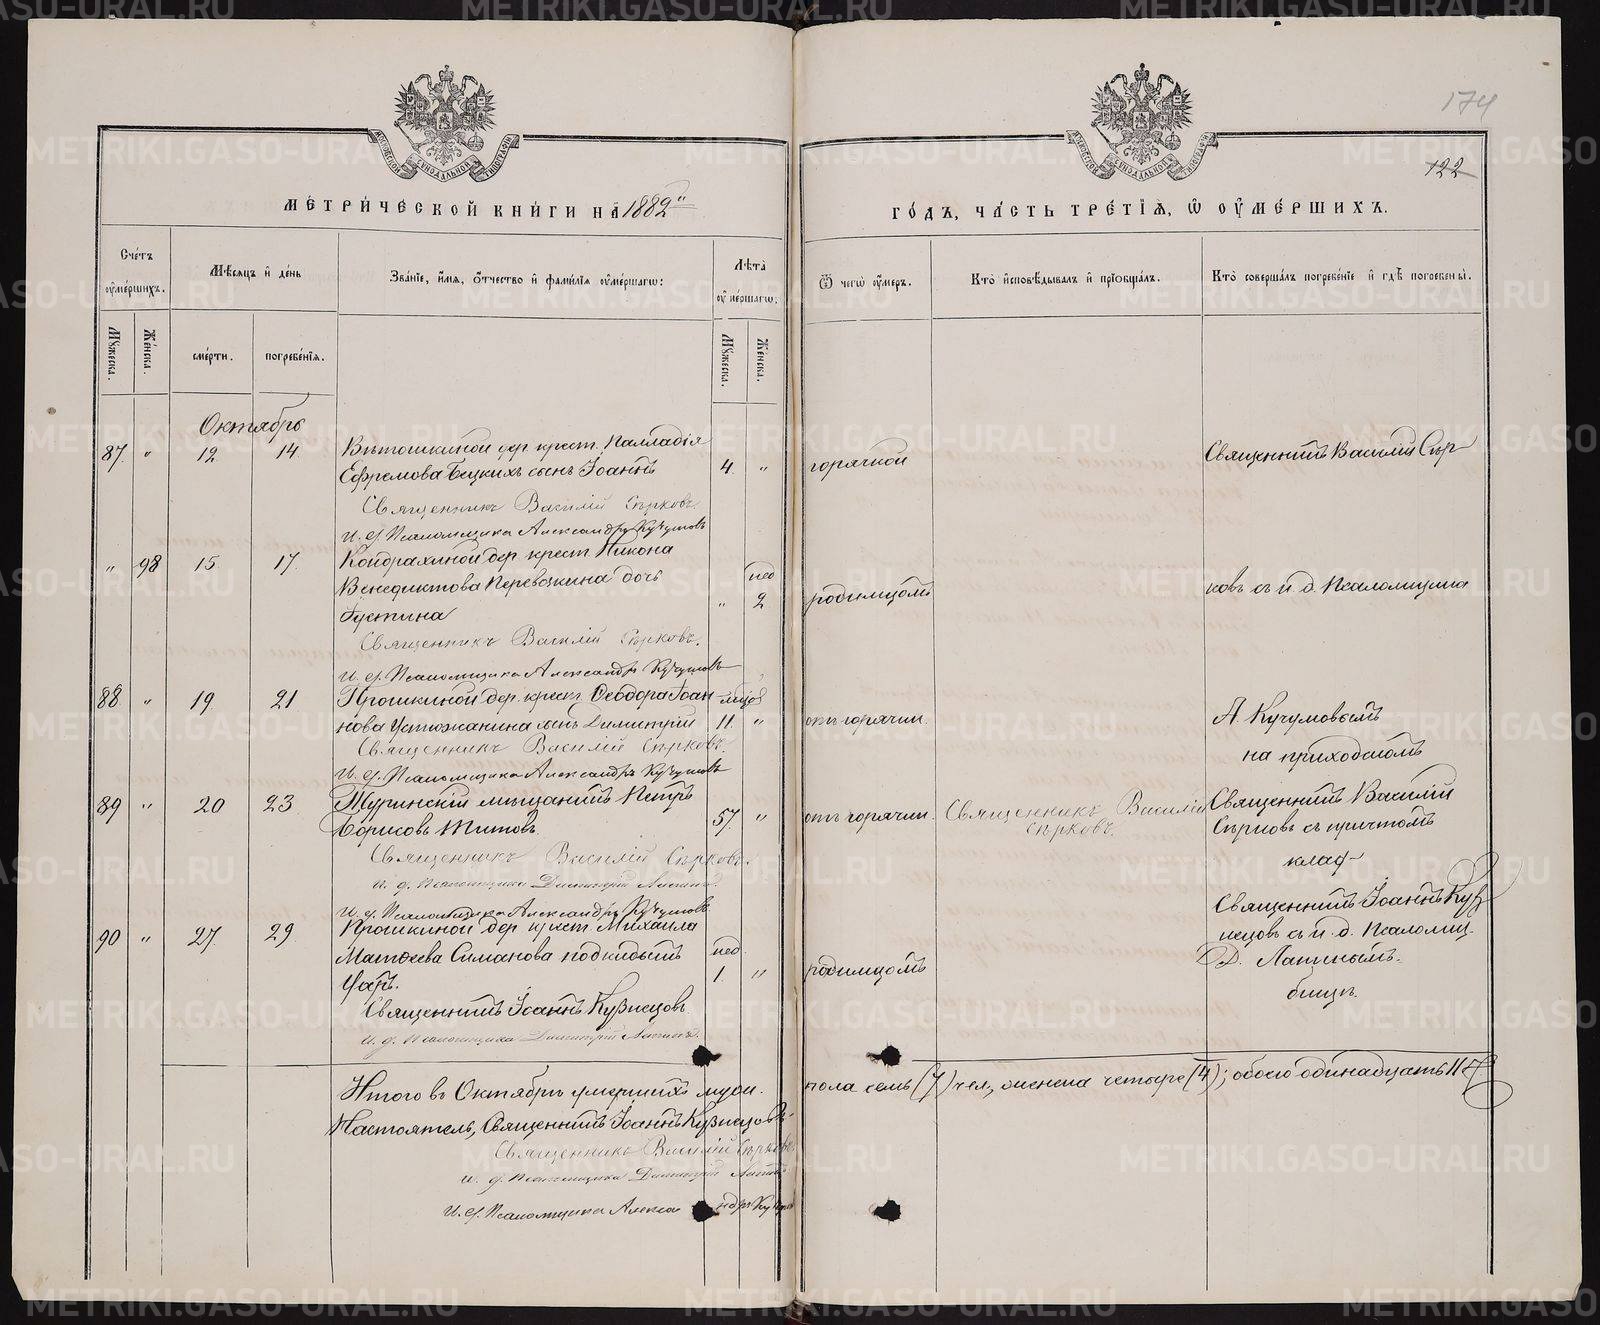 174
122
МЕТРИЧЕСКОЙ КНИГИ НА 1882й
ГОДЪ, ЧАСТЬ ТРЕТІЯ, Ѡ ОУМЕРШИХЪ.
Счетъ оумершихъ.
Мѣсяцъ и день
Званіе, имя, отчество и фамилія оумершагѡ:
Лѣта оумершагѡ:
Ѿ чегѡ оумеръ.
Кто исповѣдывалъ и пріобщалъ.
Кто совершалъ погребеніе и гдѣ погребены.
Мужеска.
Женска.
смерти.
погребенія.
Мужеска.
Женска.
Октябрь
87. " 12 14 Вѣтошкиной дер. крест. Палладія
Ефремова Бецкихъ сынъ Іоаннъ 4. " горячкой Священникъ Василій Сѣр-
Священникъ Василій Сѣрковъ.
И. д. Псаломщика Александръ Кучумовъ
" 98 15 17. Кондрахиной дер. крест. Никона
Венедиктова Перевозкина дочь нед.
Іустина " 2 родимцомъ ковъ съ и. д. Псаломщика
Священникъ Василій Сѣрковъ.
И. д. Псаломщика Александръ Кучумовъ
88. " 19. 21 Прошкиной дер. крест. Ѳеодора Іоан- мѣсяц.
нова Устюжанина сынъ Димитрій 11. " отъ горячки. А. Кучумовымъ
Священникъ Василій Сѣрковъ. на приходскомъ
И. д. Псаломщика Александръ Кучумовъ
89 " 20 23 Туринскій мѣщанинъ Петръ
Борисовъ Титовъ. 57. " отъ горячки. Священникъ Василій Сѣрковъ. Священникъ Василій
Сѣрковъ съ причтомъ
Священникъ Василій Сѣрковъ. клад-
и. д. Псаломщика Димитрій Лапинъ.
И. д. Псаломщика Александръ Кучумовъ
90 " 27. 29. Прошкиной дер. крест. Михаила Священникъ Іоаннъ Куз-
Матѳеева Симанова подкидышъ нед. нецовъ съ и. д. Псаломщ.
1. " родимцомъ Д. Лапинымъ.
Священникъ Іоаннъ Кузнецовъ. бищѣ.
и. д. Псаломщика Димитрій Лапинъ.
Итого въ Октябрѣ умершихъ муж. пола семь (7) чел., женска четыре (4); обоего одинадцать 11
Настоятель, Священникъ Іоаннъ Кузнецовъ
Священникъ Василій Сѣрковъ
и. д. Псаломщика Димитрій Лапинъ
И. д. Псаломщика Александръ Кучумовъ
METRIKI.GASO-URAL.RU